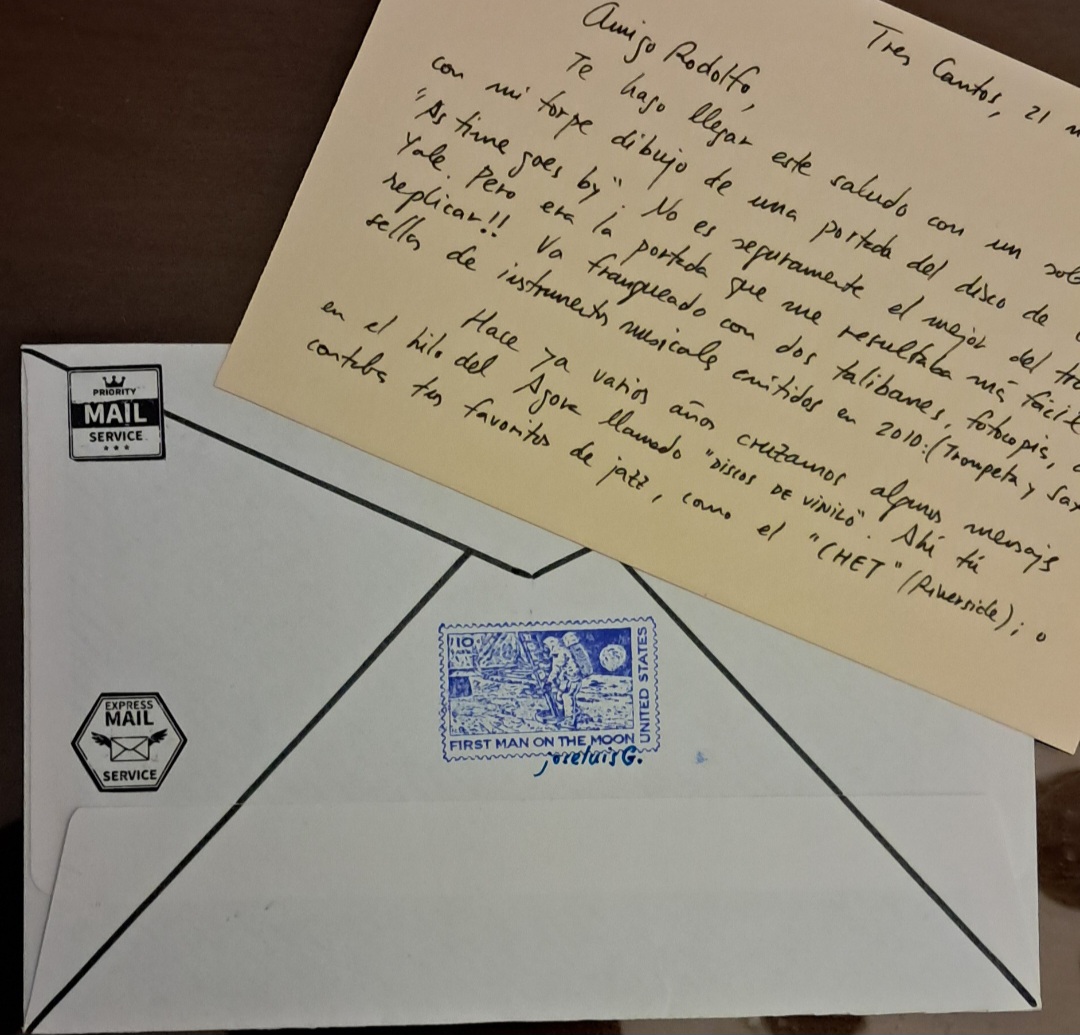 Tres Cantos, 21
Amigo Rodolfo,
Te hago llegar este saludo con un
con mi torpe dibujo de una portada del disco de
"As time goes by". No es seguramente el mejor del
Yale. Pero era la portada que me resultaba más fácil
replicar!! Va franqueado con dos talibanes, fotocopia,
sellos de instrumentos musicales emitidos en 2010: (Trompeta y
Hace ya varios años cruzamos algunos mensajes
en el hilo del Agora llamado "DISCOS DE VINILO". Ahí tú
contabas tus favoritos de jazz, como el "CHET" (Riverside); o
PRIORITY
MAIL
SERVICE
EXPRESS
MAIL
SERVICE
10
UNITED STATES
FIRST MAN ON THE MOON
joseluisG.